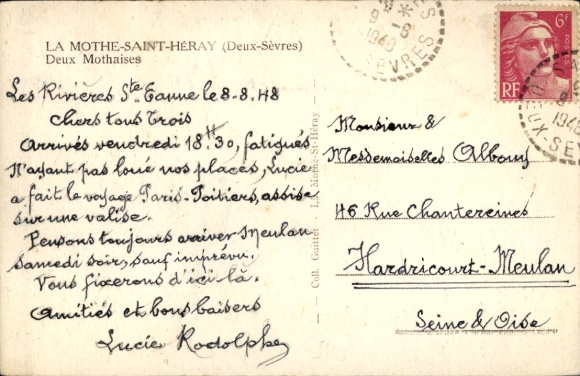 LA MOTHE-SAINT-HÉRAY (Deux-Sèvres)
Deux Mothaises
Les Rivières Ste Eanne le 8-8.48
Chers tous Trois
Arrivés vendredi 18H30, fatigués
N'ayant pas loué nos places, Lucie
a fait le voyage Paris-Poitiers, assise
sur une valise.
Pensons toujours arriver Meulan
samedi soir, sauf imprévu.
Vous fixerons d'ici là.
Amitiés et bons baisers
Lucie Rodolphe
Coll. LA MOTHE-ST-HÉRAY
6F
POSTES
RF
SÈVRES
Monsieur &
Mesdemoiselles
46 Rue Chantereines
Hardricourt-Meulan
Seine & Oise